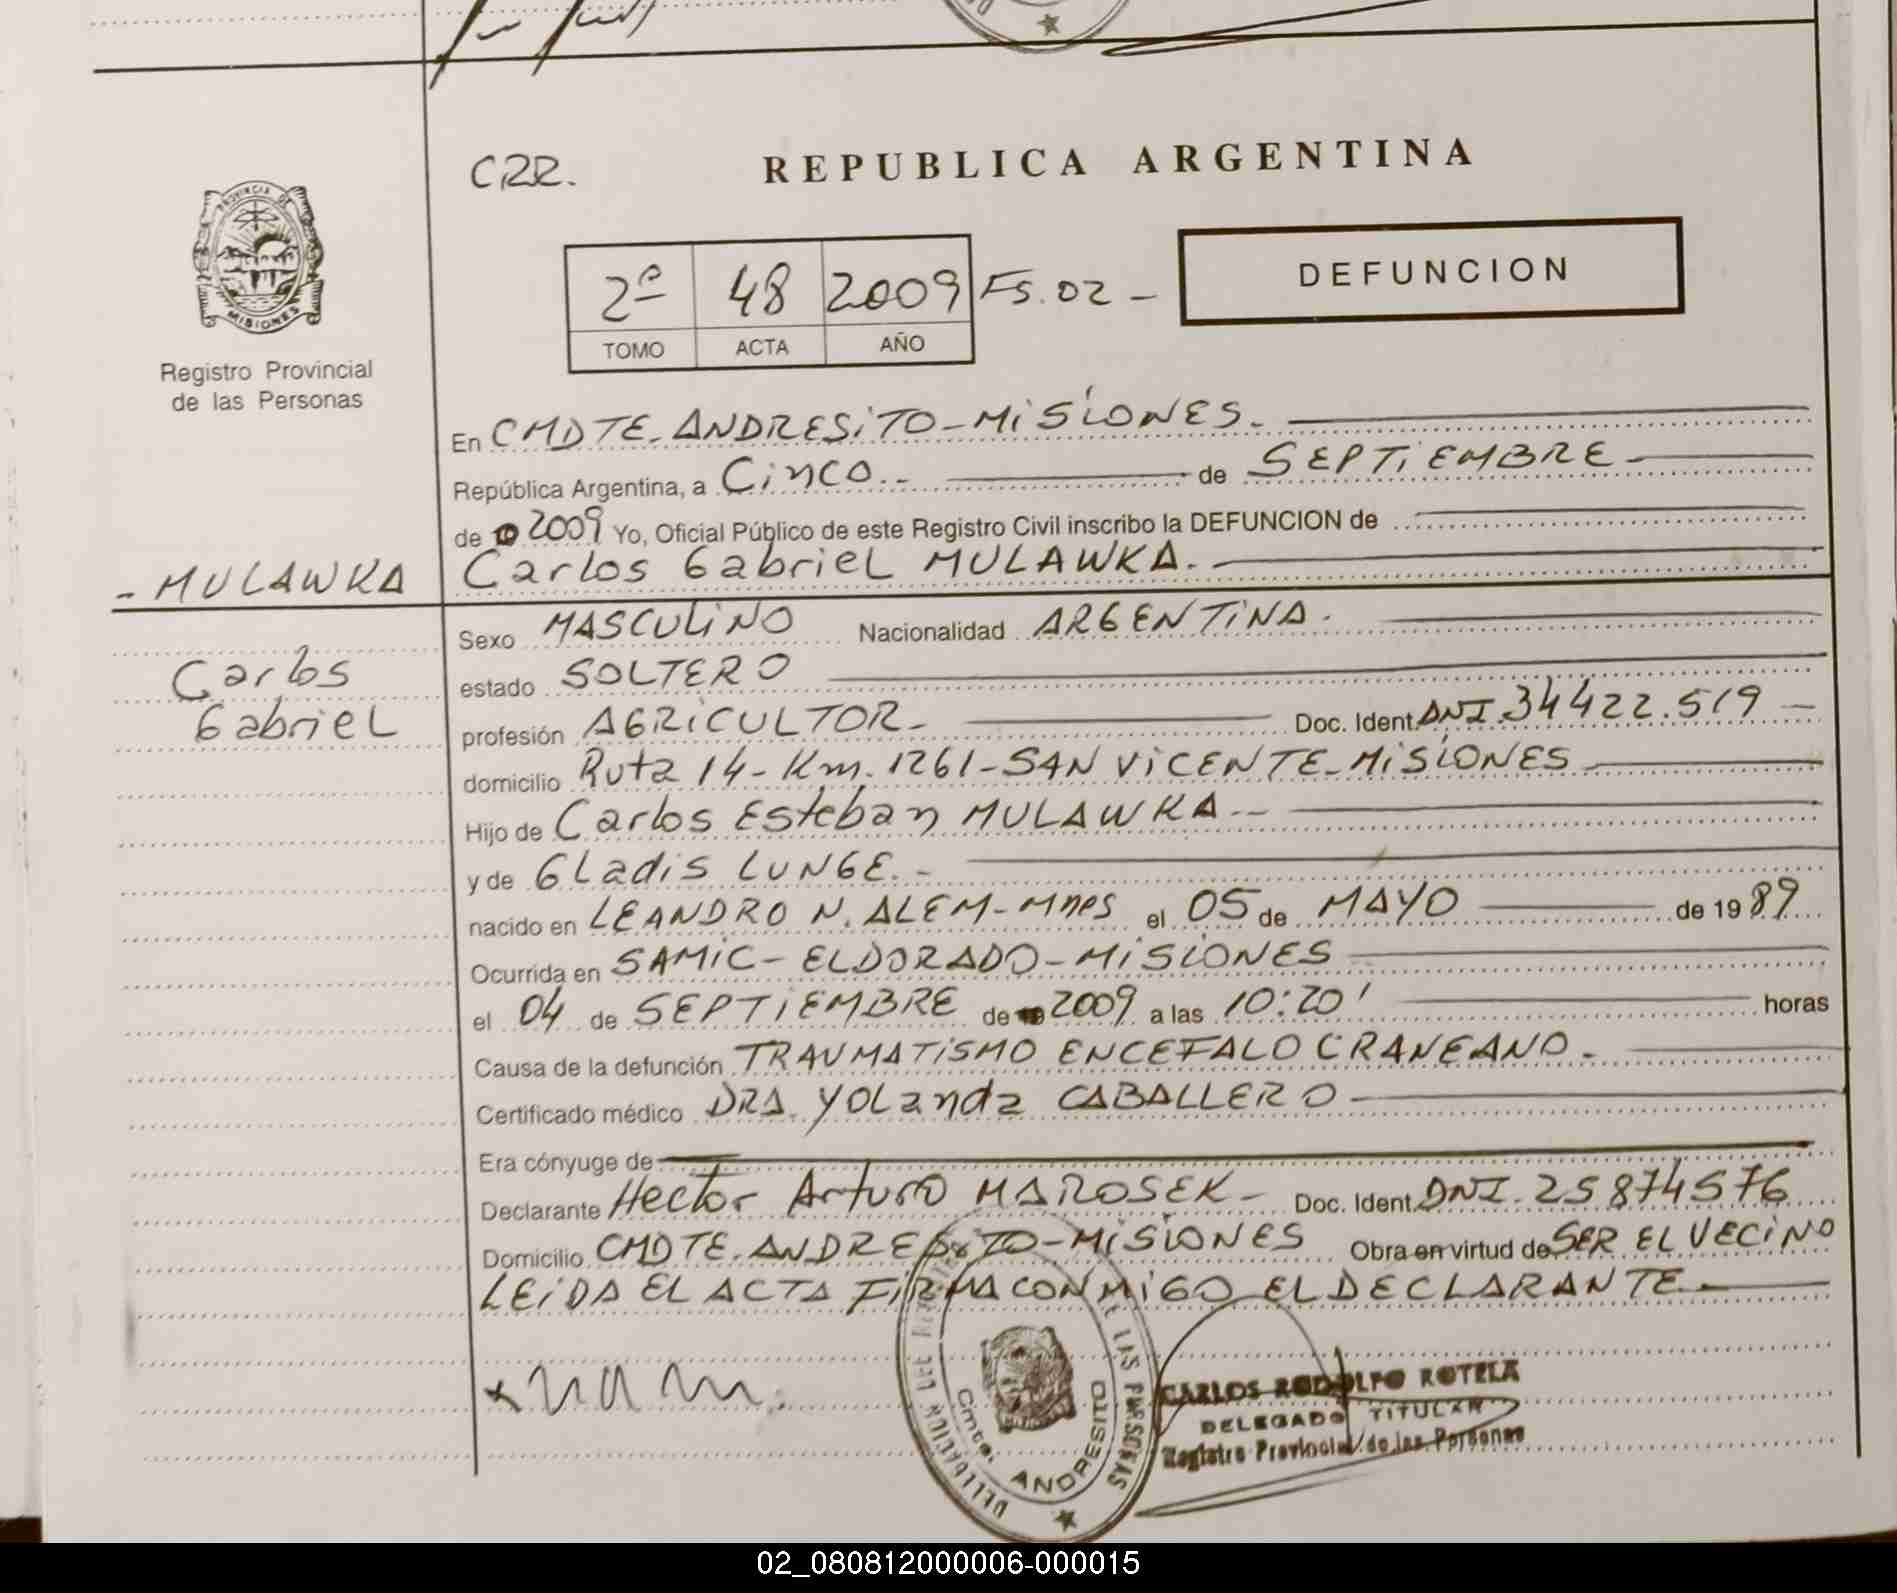 CRR.
REPUBLICA ARGENTINA
PROVINCIA DE
MISIONES
Registro Provincial
de las Personas
2º 48 2009 Fs. 02 -
TOMO ACTA AÑO
DEFUNCION
En CMDTE. ANDRESITO - MISIONES.
República Argentina, a Cinco.- de SEPTIEMBRE
de 2009 Yo, Oficial Público de este Registro Civil inscribo la DEFUNCION de
- MULAWKA
Carlos Gabriel MULAWKA.
Carlos
Gabriel
Sexo MASCULINO Nacionalidad ARGENTINA.
estado SOLTERO
profesión AGRICULTOR- Doc. Ident. DNI. 34422.519 -
domicilio Ruta 14- Km. 1261- SAN VICENTE- MISIONES
Hijo de Carlos Esteban MULAWKA.--
y de GLadis LUNGE.-
nacido en LEANDRO N. ALEM- Mnes el 05 de MAYO de 1989
Ocurrida en SAMIC- ELDORADO- MISIONES
el 04 de SEPTIEMBRE de 2009 a las 10:20' horas
Causa de la defunción TRAUMATISMO ENCEFALO CRANEANO.
Certificado médico DRA. YOLanda CABALLERO
Era cónyuge de
Declarante Hector Arturo MAROSEK- Doc. Ident. DNI. 25874576
Domicilio CMDTE. ANDRESITO- MISIONES Obra en virtud de SER EL VECINO
LEIDA EL ACTA FIRMA CONMIGO EL DECLARANTE
DE LAS PERSONAS
Cmte. ANDRESITO
CARLOS RODOLFO ROTELA
DELEGADO TITULAR
Registro Provincial de las Personas
02_080812000006-000015